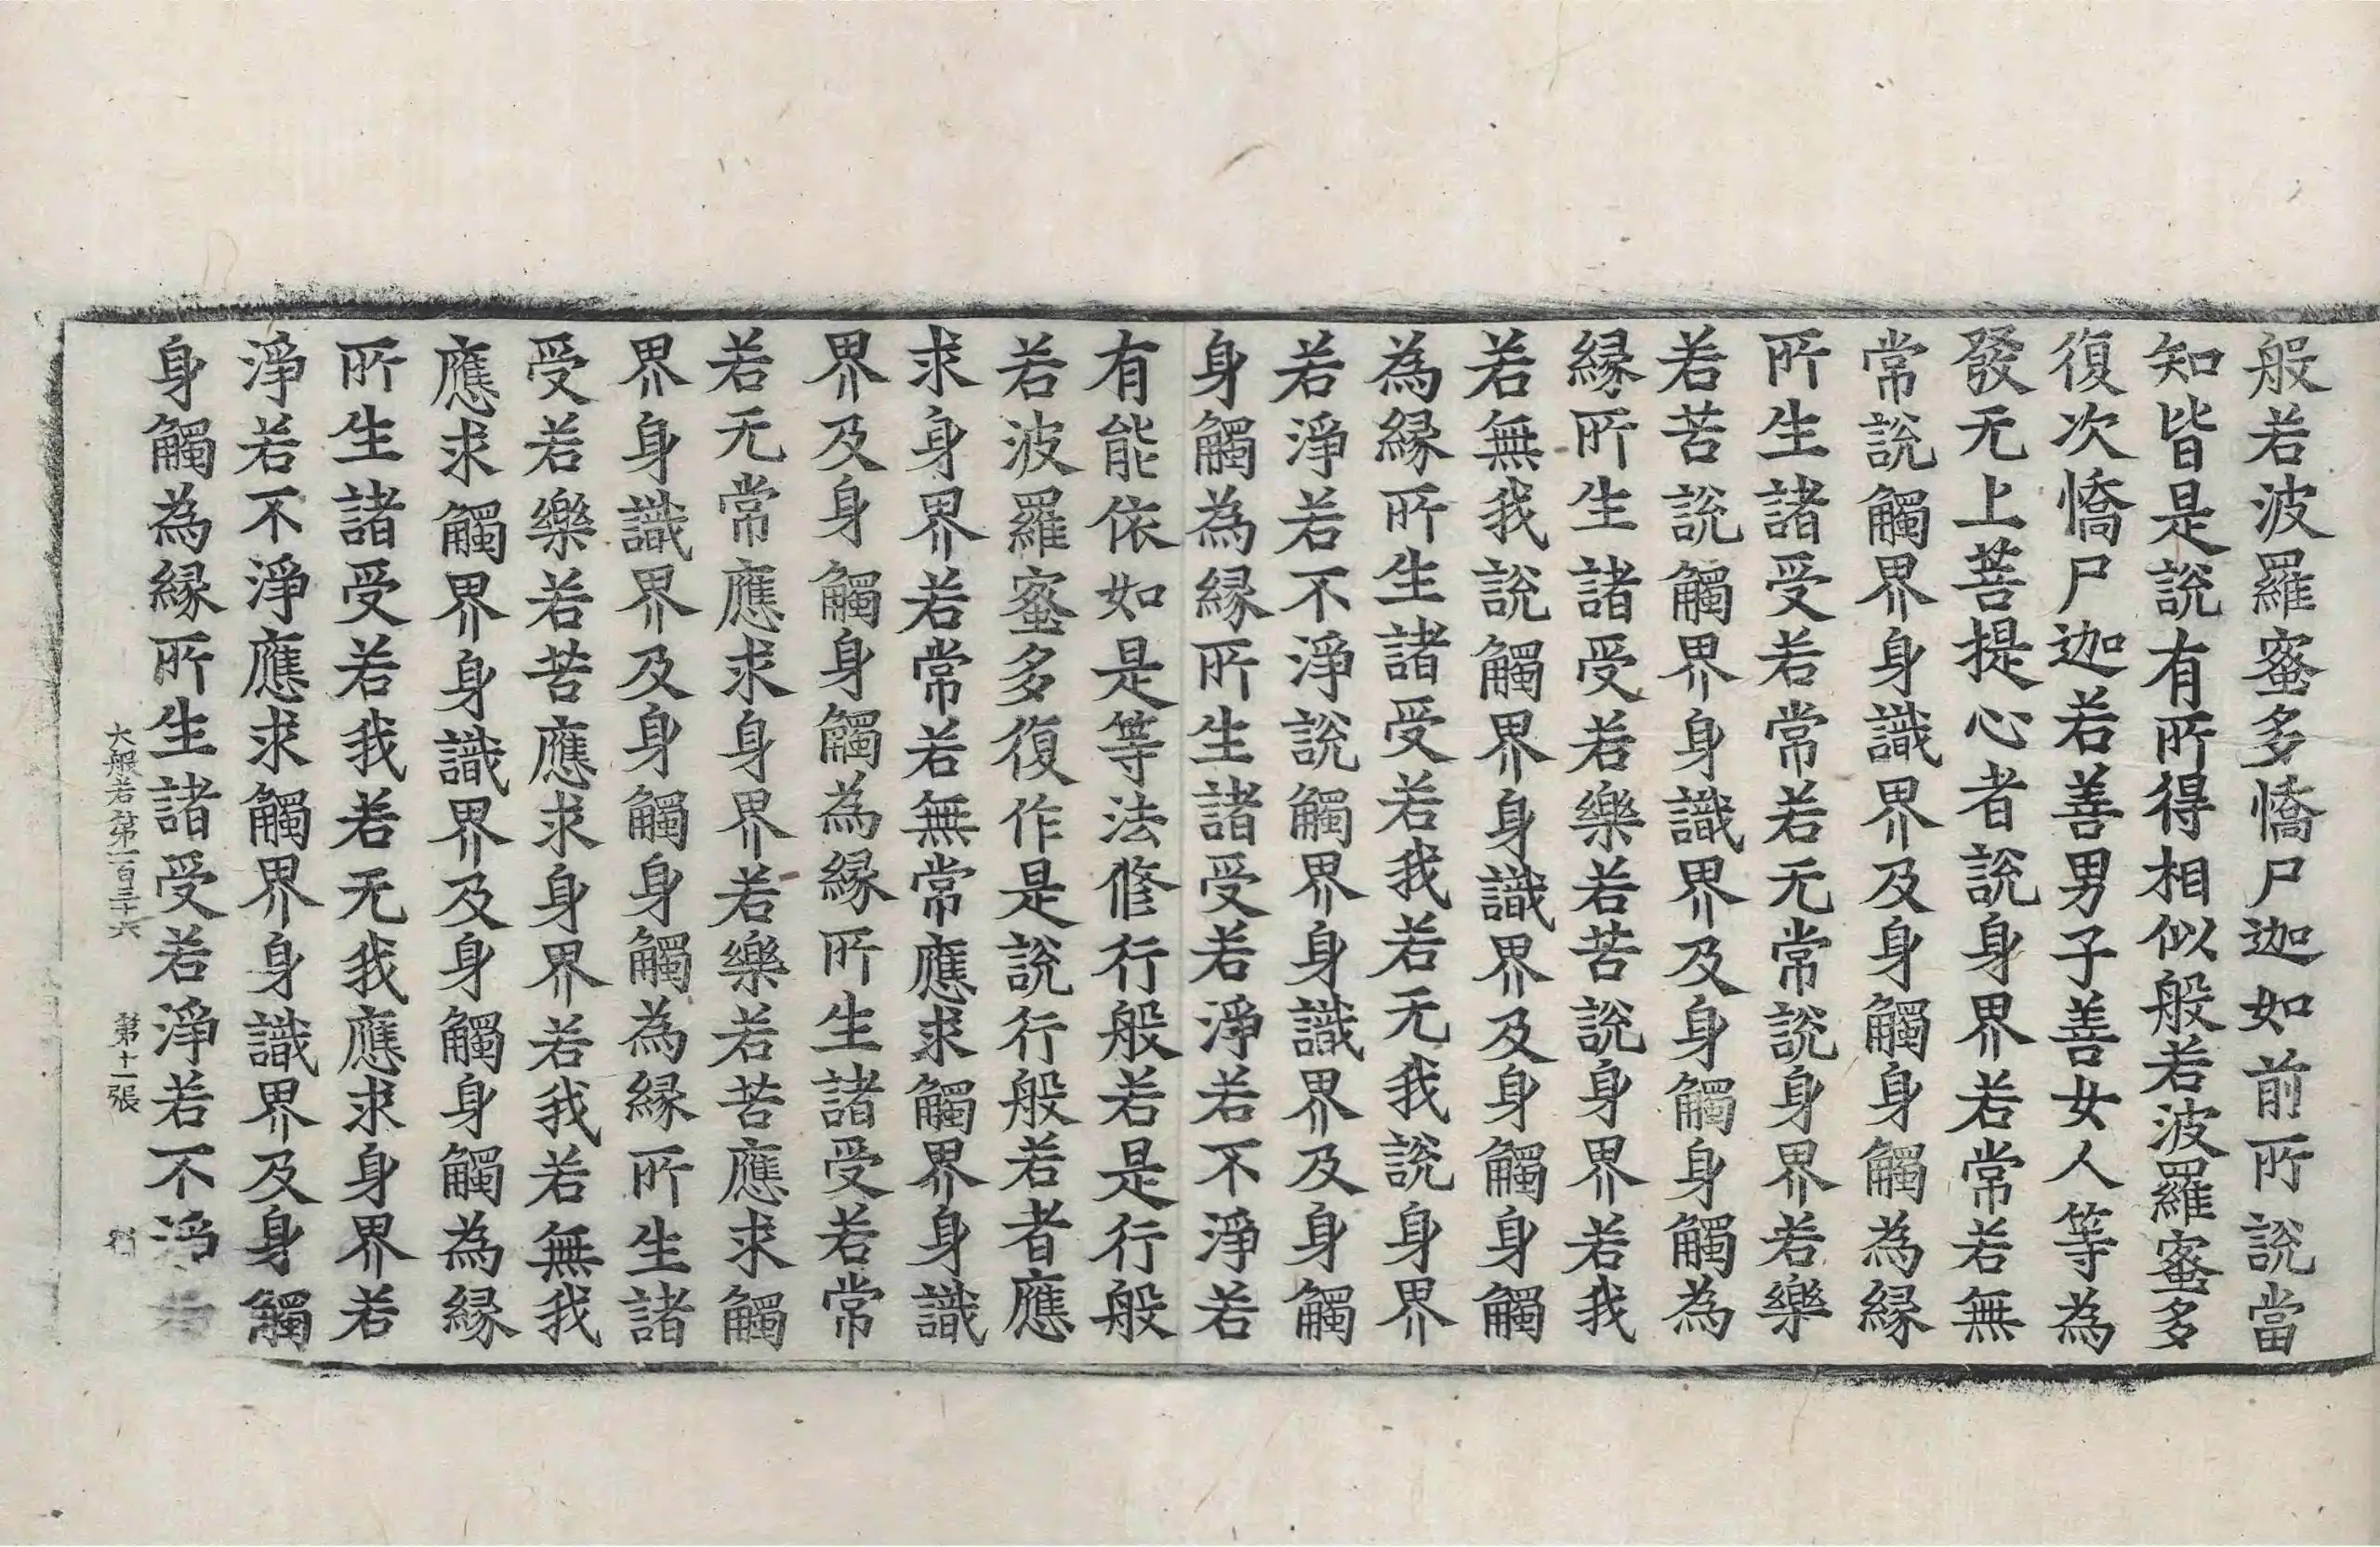 般若波羅蜜多憍尸迦如前所說當
知皆是說有所得相似般若波羅蜜多
復次憍尸迦若善男子善女人等為
發无上菩提心者說身界若常若無
常說觸界身識界及身觸身觸為縁
所生諸受若常若无常說身界若樂
若苦說觸界身識界及身觸身觸為
縁所生諸受若樂若苦說身界若我
若無我說觸界身識界及身觸身觸
為縁所生諸受若我若无我說身界
若淨若不淨說觸界身識界及身觸
身觸為縁所生諸受若淨若不淨若
有能依如是等法修行般若是行般
若波羅蜜多復作是說行般若者應
求身界若常若無常應求觸界身識
界及身觸身觸為縁所生諸受若常
若无常應求身界若樂若苦應求觸
界身識界及身觸身觸為縁所生諸
受若樂若苦應求身界若我若無我
應求觸界身識界及身觸身觸為縁
所生諸受若我若无我應求身界若
淨若不淨應求觸界身識界及身觸
身觸為縁所生諸受若淨若不淨若
大般若第一百三十六 第十一張